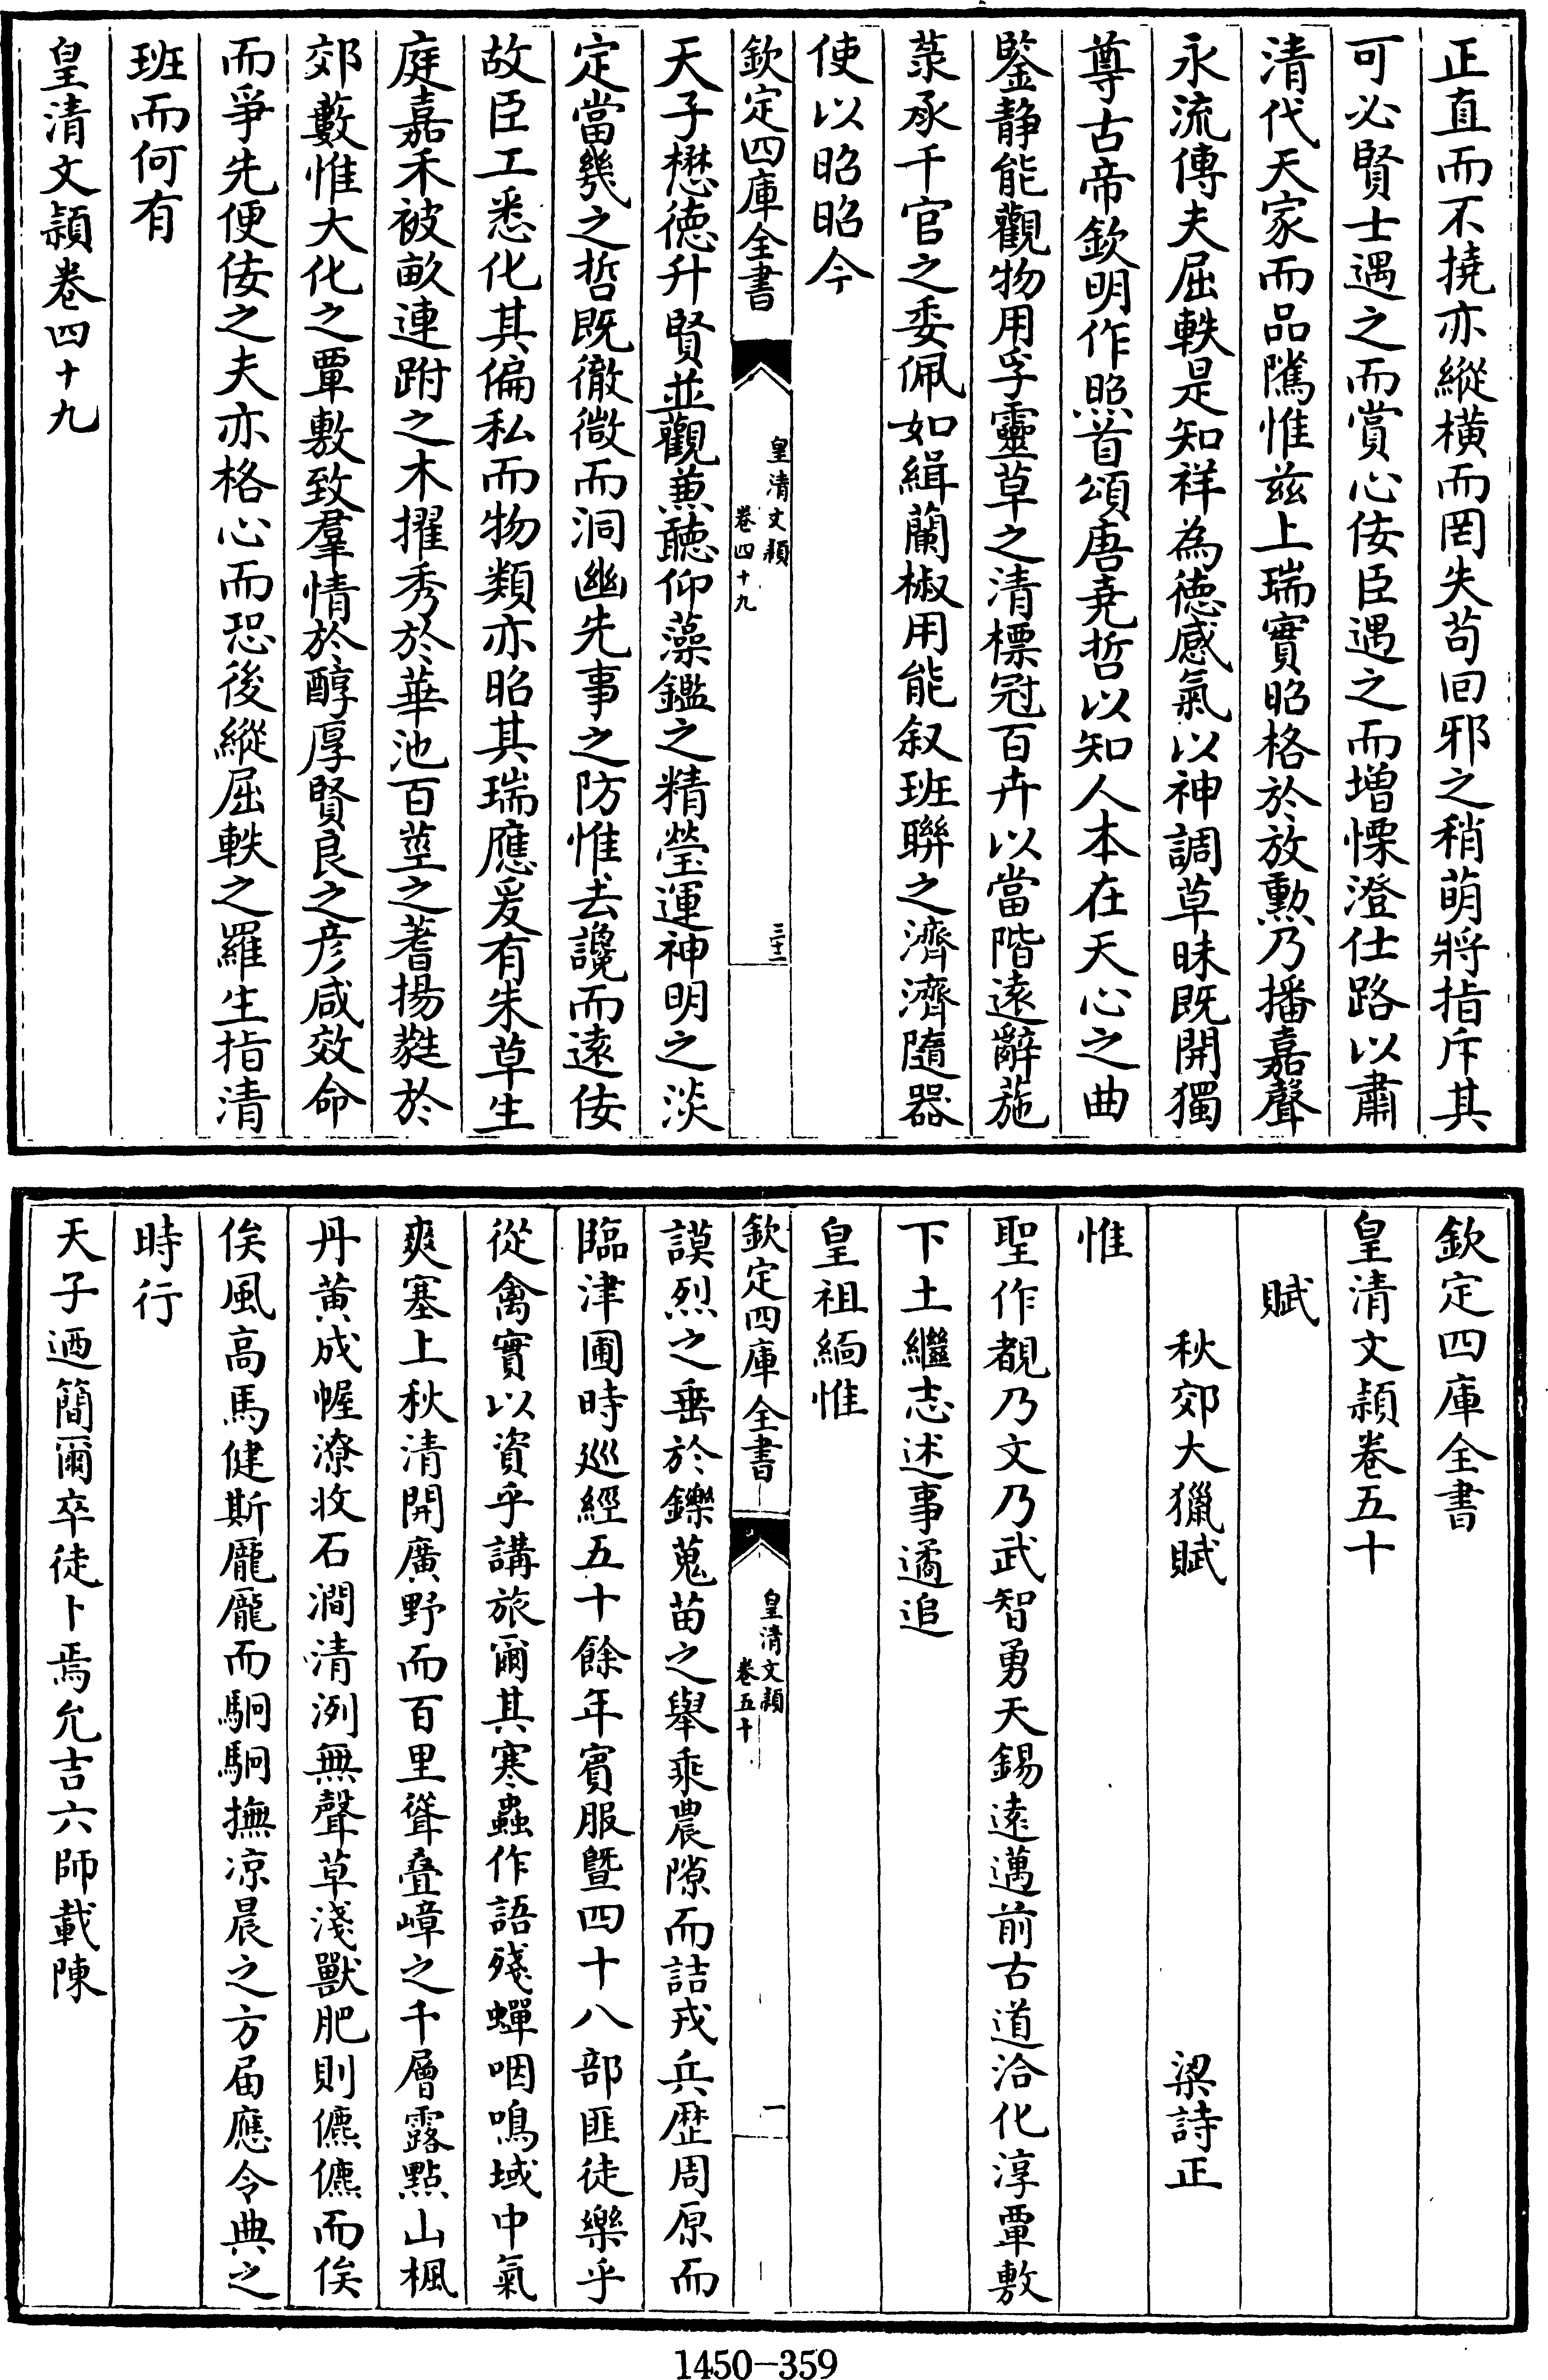 正直而不撓亦縱橫而罔失苟回邪之稍萌將指斥其
可必賢士遇之而賞心佞臣遇之而增慄澄仕路以肅
清代天家而品隲惟兹上瑞實昭格於放勲乃播嘉聲
永流傳夫屈軼是知祥為徳感氣以神調草昧既開獨
尊古帝欽明作照首頌唐堯哲以知人本在天心之曲
鑒静能觀物用孚靈草之清標冠百卉以當階逺辭葹
菉承千官之委佩如緝蘭椒用能叙班聯之濟濟隨器
使以昭昭今
欽定四庫全書
皇清文穎
卷四十九
三十二
天子懋徳升賢並觀兼聽仰藻鑑之精瑩運神明之淡
定當幾之哲既徹微而洞幽先事之防惟去讒而遠佞
故臣工悉化其偏私而物類亦昭其瑞應爰有朱草生
庭嘉禾被畝連跗之木擢秀於華池百莖之蓍揚蕤於
郊藪惟大化之覃敷致羣情於醇厚賢良之彦咸效命
而爭先便佞之夫亦格心而恐後縱屈軼之羅生指清
班而何有
皇清文穎卷四十九
欽定四庫全書
皇清文穎卷五十
賦
秋郊大獵賦 梁詩正
惟
聖作覩乃文乃武智勇天錫逺邁前古道洽化淳覃敷
下土繼志述事遹追
皇祖緬惟
欽定四庫全書
皇清文穎
卷五十
一
謨烈之垂於鑠蒐苗之舉乘農隙而詰戎兵歴周原而
臨津圃時廵經五十餘年賓服曁四十八部匪徒樂乎
從禽實以資乎講旅爾其寒蟲作語殘蟬咽鳴域中氣
爽塞上秋清開廣野而百里聳叠嶂之千層露點山楓
丹黄成幄潦收石澗清洌無聲草淺獸肥則儦儦而俟
俟風高馬健斯龎龎而駉駉撫凉晨之方届應令典之
時行
天子迺簡爾卒徒卜焉允吉六師載陳
1450-359